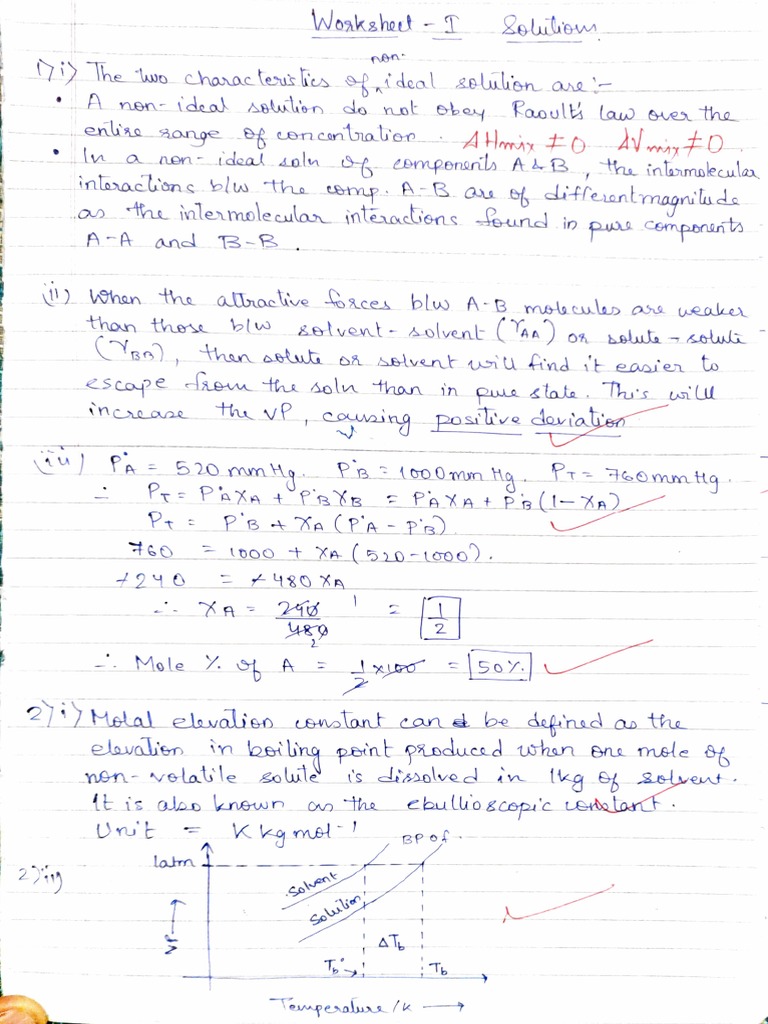 Worksheet - I Solutions
1) i) The two characteristics of non-ideal solution are :-
• A non-ideal solution do not obey Raoult's law over the
entire range of concentration. ΔHmix ≠ 0 ΔVmix ≠ 0
• In a non-ideal soln of components A & B, the intermolecular
interactions b/w the comp. A-B are of different magnitude
as the intermolecular interactions found in pure components
A-A and B-B.
(ii) When the attractive forces b/w A-B molecules are weaker
than those b/w solvent-solvent (γAA) or solute-solute
(γBB), then solute or solvent will find it easier to
escape from the soln than in pure state. This will
increase the VP, causing positive deviation
(iii) P°A = 520 mm Hg. P°B = 1000 mm Hg. PT = 760 mm Hg.
∴ PT = P°A XA + P°B XB = P°A XA + P°B (1 - XA)
PT = P°B + XA (P°A - P°B)
760 = 1000 + XA (520-1000).
+240 = +480 XA
∴ XA = 240/480 1 2 = 1/2
∴ Mole % of A = 1/2 x 100 = 50%
2) i) Molal elevation constant can be defined as the
elevation in boiling point produced when one mole of
non-volatile solute is dissolved in 1kg of solvent.
It is also known as the ebullioscopic constant.
Unit = K kg mol-1
2) ii)
1atm BP of.
Solvent
Solution
VP
ΔTb
Tb° Tb
Temperature/K